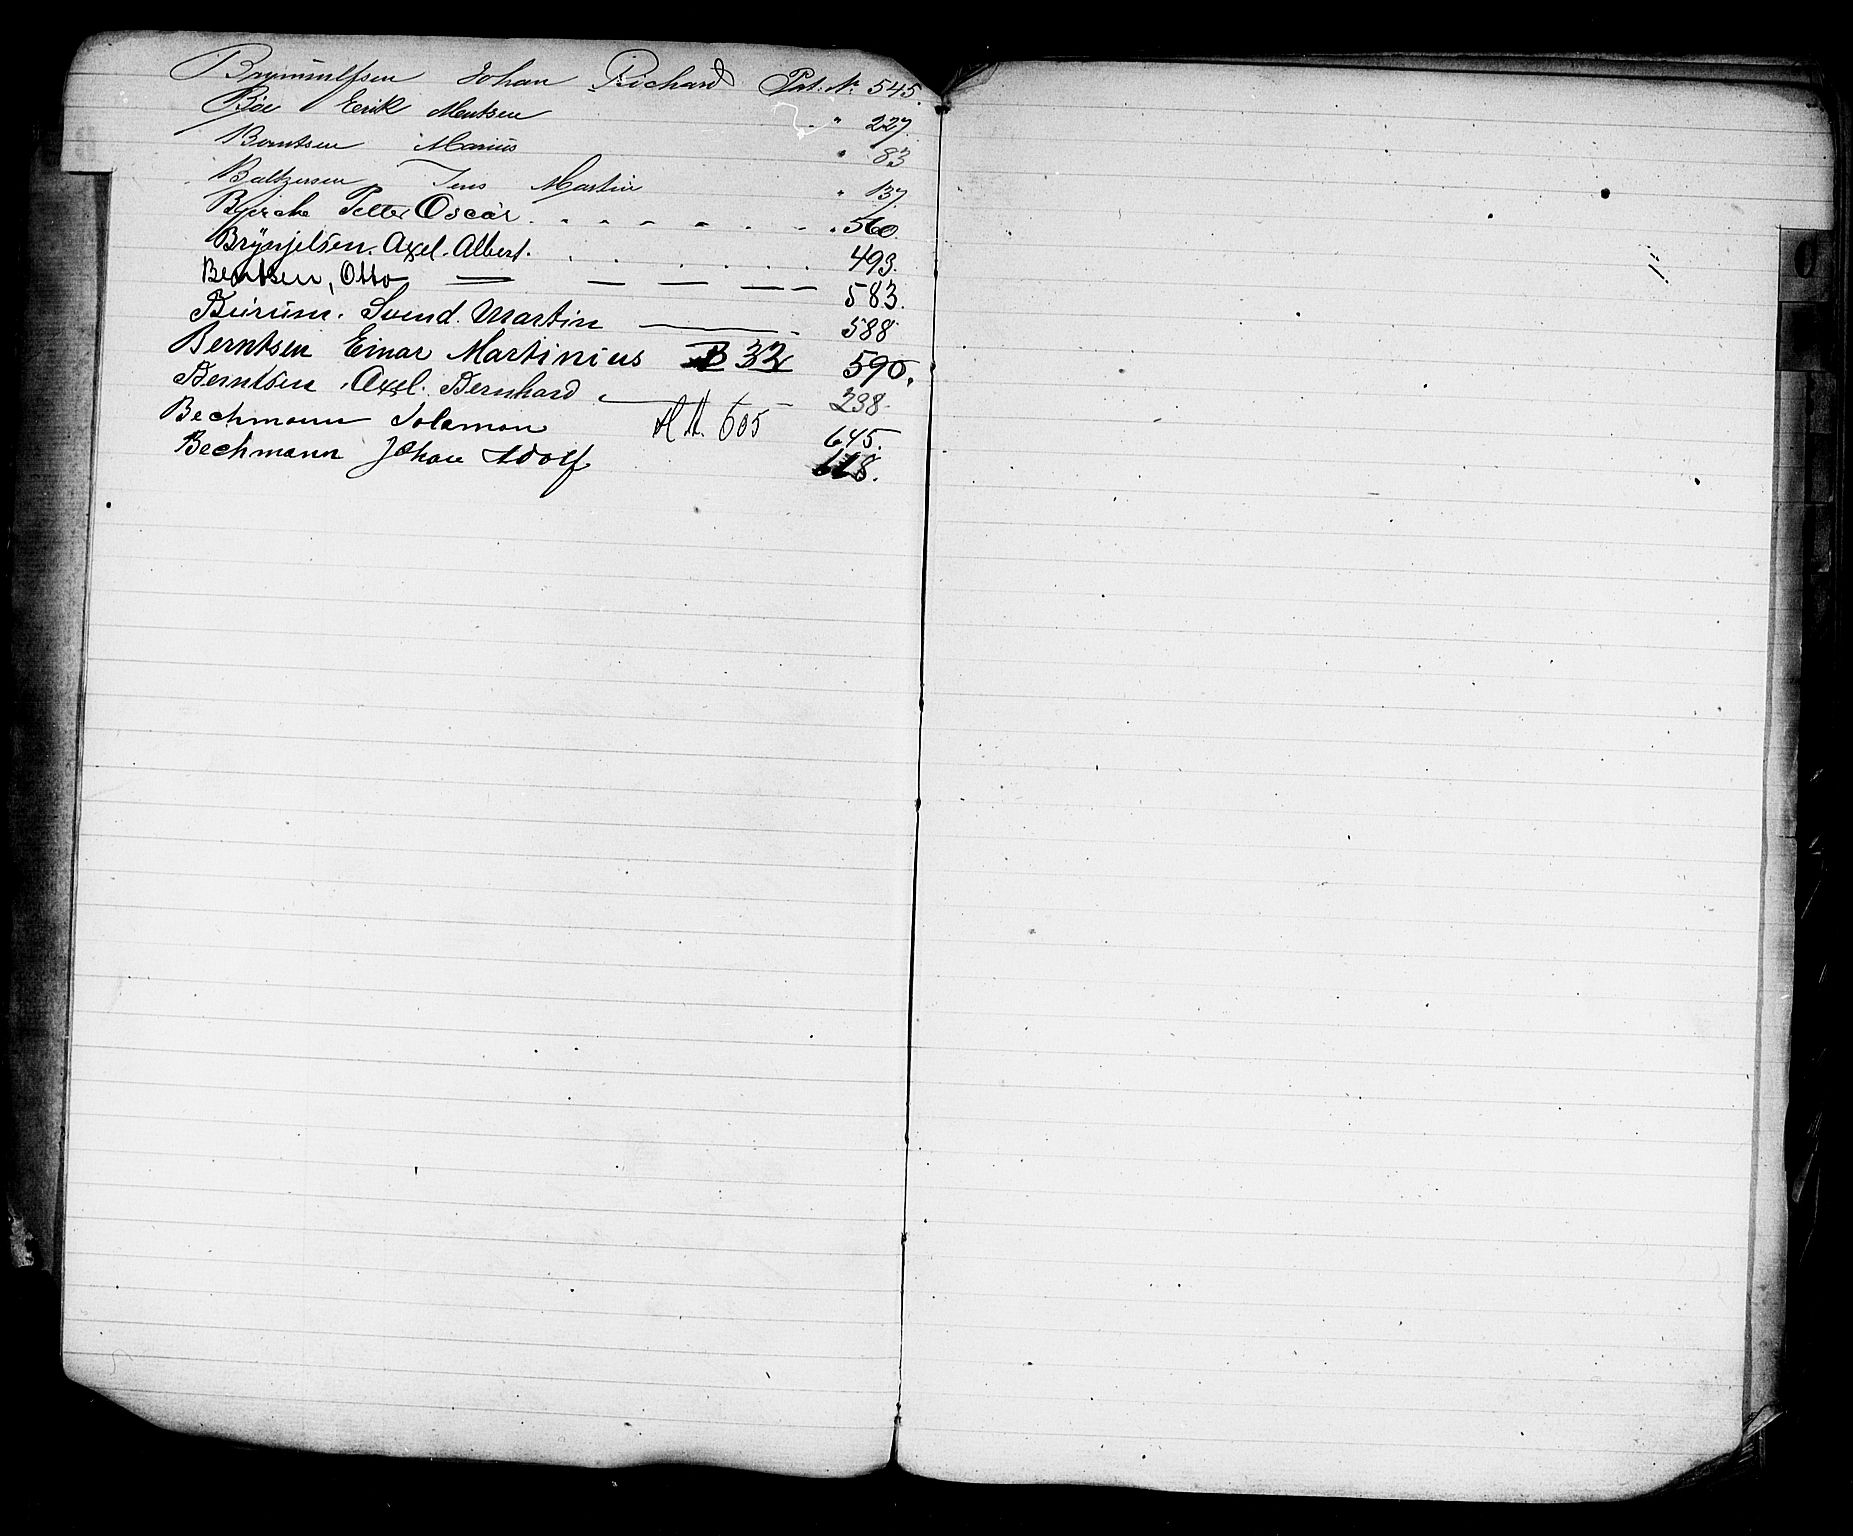 Brynnulfsen Johan Richard Pat. Nr. 545.
Bøe Erik Mentsen " 227.
Berntsen Marius " 83
Baltzersen Jens Martin " 137.
Bjerche Petter Oscar . - - - - - - - 560.
Brynjelsen. Axel. Albert. . . . . . . 493.
Bentsen, Otto — — — — 583.
Beirum. Svend. Martin — 588.
Berntsen Einar Martinius B 32 590.
Berntsen. Axel. Bernhard — 238.
Bechmann Solamon H. R. 605 645.
Bechmann Johan Adolf 618.